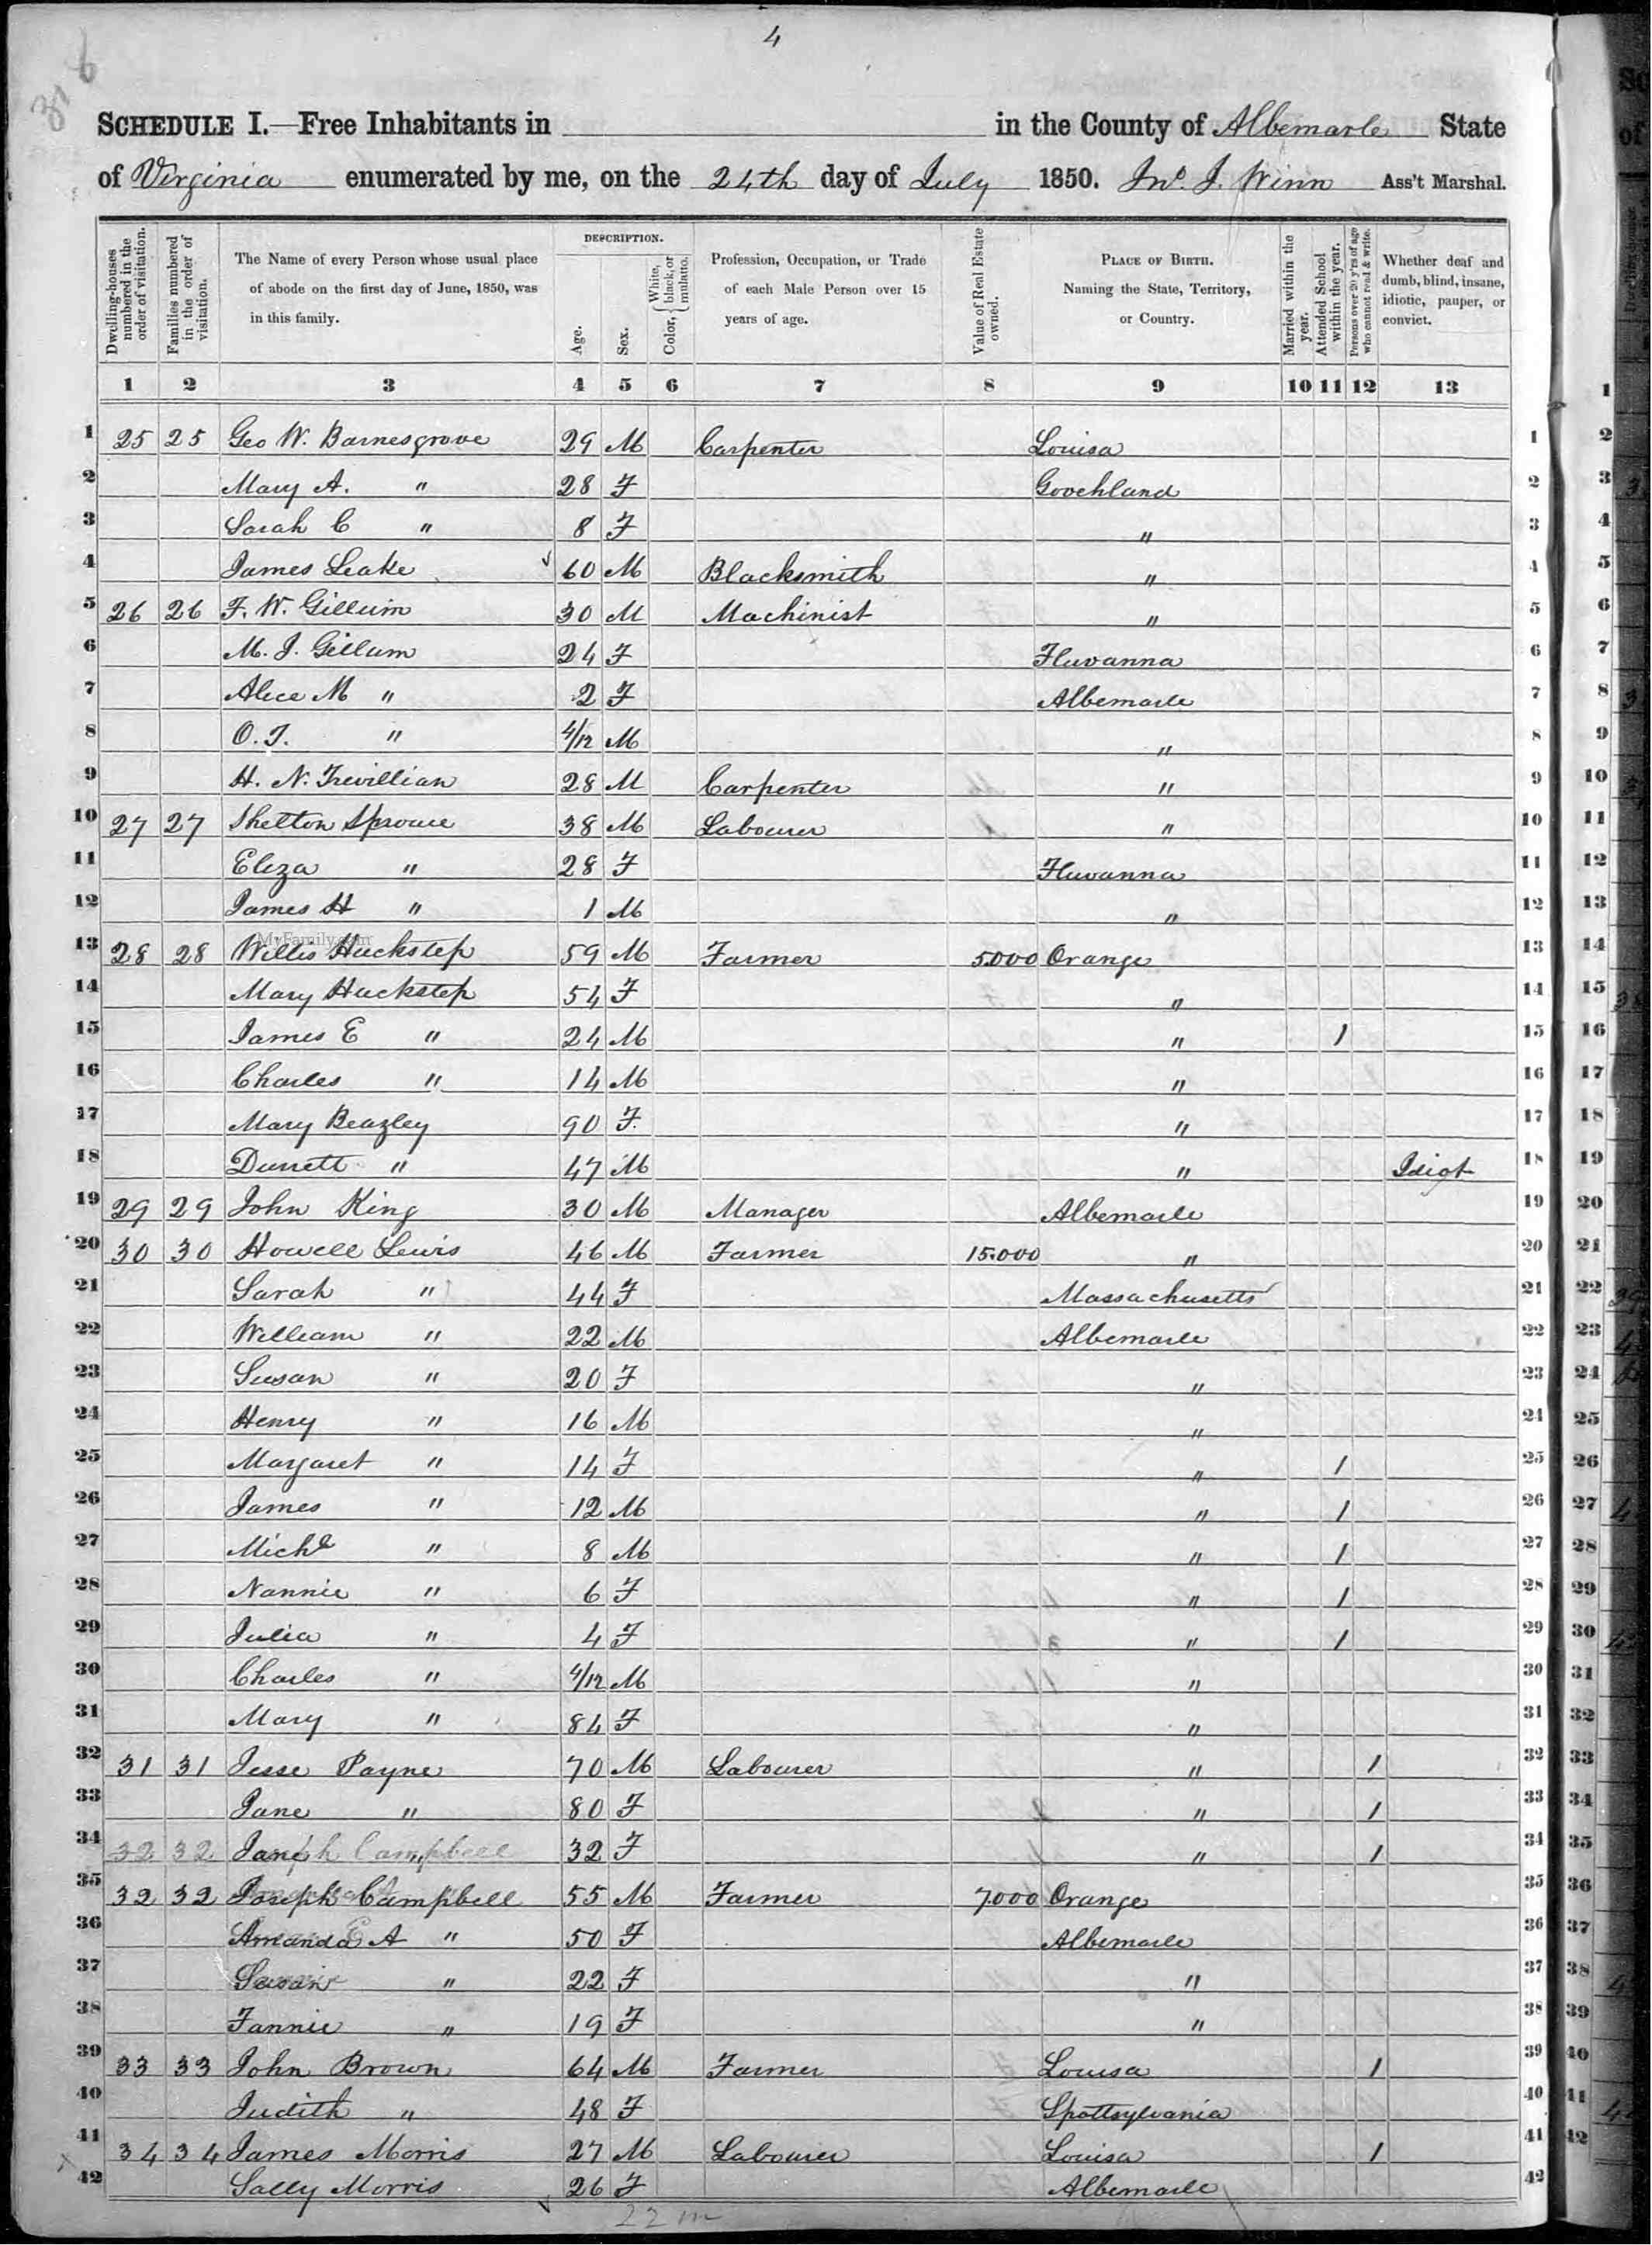 4
316
SCHEDULE I.—Free Inhabitants in in the County of Albemarle State
of Virginia enumerated by me, on the 24th day of July 1850. Jno. J. Winn Ass't Marshal.
Dwelling-houses numbered in the order of visitation.
Families numbered in the order of visitation.
The Name of every Person whose usual place of abode on the first day of June, 1850, was in this family.
DESCRIPTION.
Age.
Sex.
Color, White, black, or mulatto.
Profession, Occupation, or Trade of each Male Person over 15 years of age.
Value of Real Estate owned.
PLACE OF BIRTH. Naming the State, Territory, or Country.
Married within the year.
Attended School within the year.
Persons over 20 y'rs of age who cannot read & write.
Whether deaf and dumb, blind, insane, idiotic, pauper, or convict.
1 2 3 4 5 6 7 8 9 10 11 12 13
1 25 25 Geo W. Barnesgrove 29 M Carpenter Louisa 1
2 Mary A. " 28 F Goochland 2
3 Sarah C " 8 F " 3
4 James Leake 60 M Blacksmith " 4
5 26 26 F. W. Gillum 30 M Machinist " 5
6 M. J. Gillum 24 F Fluvanna 6
7 Alice M " 2 F Albemarle 7
8 O. T. " 4/12 M " 8
9 H. N. Trevillian 28 M Carpenter " 9
10 27 27 Shelton Sprouce 38 M Labourer " 10
11 Eliza " 28 F Fluvanna 11
12 James H " 1 M " 12
MyFamily.com
13 28 28 Willis Huckstep 59 M Farmer 5.000 Orange 13
14 Mary Huckstep 54 F " 14
15 James E " 24 M " 1 15
16 Charles " 14 M " 16
17 Mary Beazley 90 F. " 17
18 Durrett " 47 M " Idiot 18
19 29 29 John King 30 M Manager Albemarle 19
20 30 30 Howell Lewis 46 M Farmer 15.000 " 20
21 Sarah " 44 F Massachusetts 21
22 William " 22 M Albemarle 22
23 Susan " 20 F " 23
24 Henry " 16 M " 24
25 Margaret " 14 F " 1 25
26 James " 12 M " 1 26
27 Michl " 8 M " 1 27
28 Nannie " 6 F " 1 28
29 Julia " 4 F " 1 29
30 Charles " 4/12 M " 30
31 Mary " 84 F " 31
32 31 31 Jesse Payne 70 M Labourer " 1 32
33 Jane " 80 F " 1 33
34 32 32 Jane " 32 F " 1 34
35 32 32 Joseph Campbell 55 M Farmer 7.000 Orange 35
36 Amanda A " 50 F Albemarle 36
37 Susan " 22 F " 37
38 Fannie " 19 F " 38
39 33 33 John Brown 64 M Farmer Louisa 1 39
40 Judith " 48 F Spottsylvania 40
41 34 34 James Morris 27 M Labourer Louisa 1 41
42 Sally Morris 26 F Albemarle 42
22 m